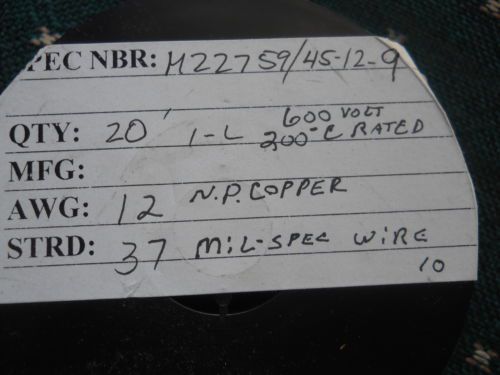 PEC NBR: M22759/45-12-9
QTY: 20' 1-L 600 VOLT 200°C RATED
MFG:
AWG: 12 N.P. COPPER
STRD: 37 MIL-SPEC WIRE
10